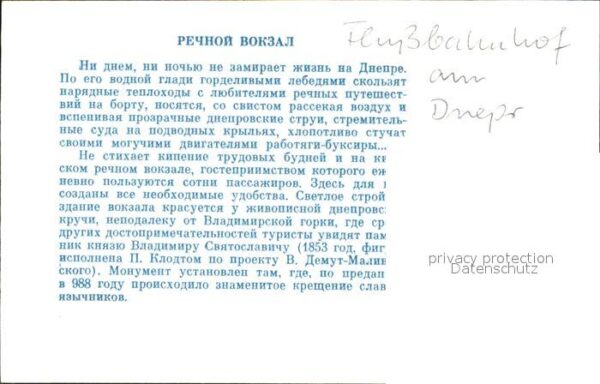 РЕЧНОЙ ВОКЗАЛ
Ни днем, ни ночью не замирает жизнь на Днепре.
По его водной глади горделивыми лебедями скользят
нарядные теплоходы с любителями речных путешест-
вий на борту, носятся, со свистом рассекая воздух и
вспенивая прозрачные днепровские струи, стремитель-
ные суда на подводных крыльях, хлопотливо стучат
своими могучими двигателями работяги-буксиры...
Не стихает кипение трудовых будней и на ки
ском речном вокзале, гостеприимством которого еж
невно пользуются сотни пассажиров. Здесь для
созданы все необходимые удобства. Светлое строй
здание вокзала красуется у живописной днепровс
кручи, неподалеку от Владимирской горки, где ср
других достопримечательностей туристы увидят пам
ник князю Владимиру Святославичу (1853 год, фиг
исполнена П. Клодтом по проекту В. Демут-Малин
ского). Монумент установлен там, где, по предан
в 988 году происходило знаменитое крещение слав
язычников.
Flußbahnhof
am
Dnepr
privacy protection
Datenschutz